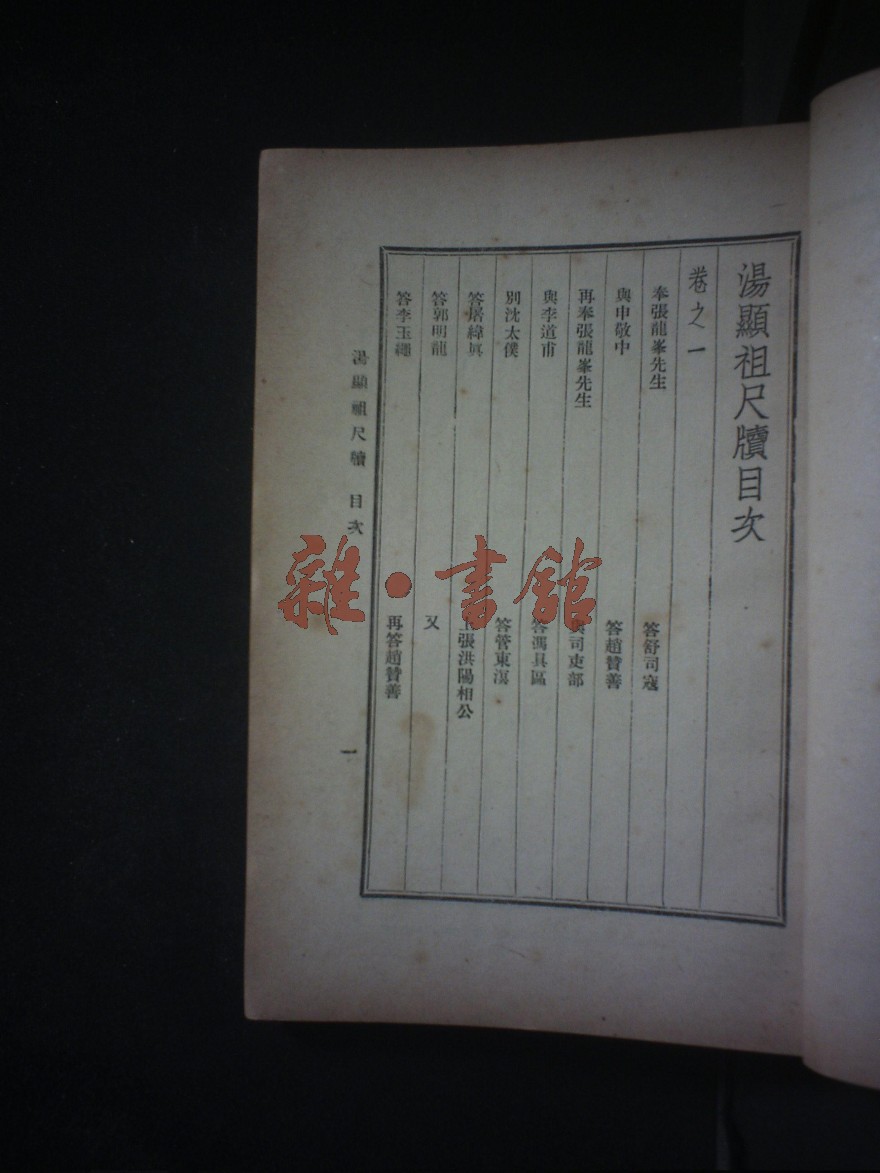 湯顯祖尺牘目次
卷之一
奉張龍峯先生
答舒司寇
與申敬中
答趙贊善
再奉張龍峯先生
司吏部
與李道甫
答馮具區
別沈太僕
答管東溟
答屠緯眞
張洪陽相公
答郭明龍
又
答李玉繩
再答趙贊善
湯顯祖尺牘 目次
一
雜·書館